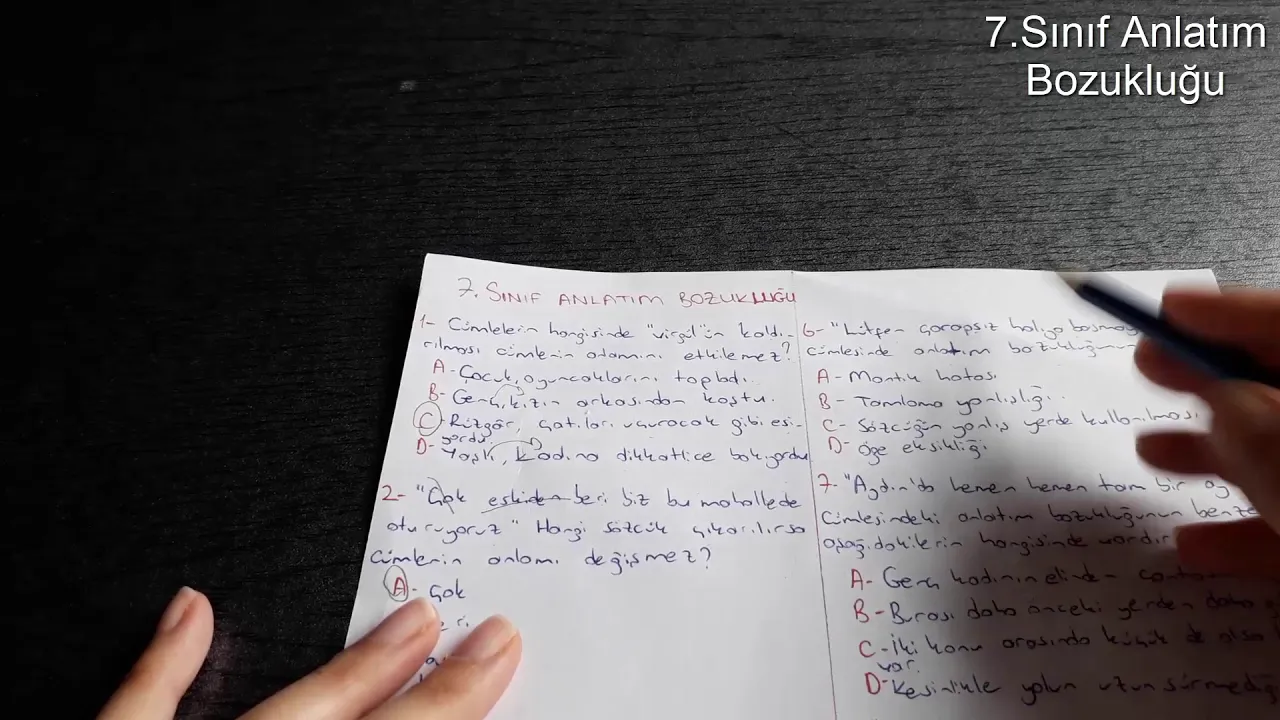 7.Sınıf Anlatım
Bozukluğu
7. SINIF ANLATIM BOZUKLUĞU
1- Cümlelerin hangisinde "virgül"ün kaldı-
rılması cümlenin anlamını etkilemez?
A- Çocuk, oyuncaklarını topladı.
B- Genç, kızın arkasından koştu.
C- Rüzgâr, çatıları uçuracak gibi esi-
yordu
D- Yaşlı, kadına dikkatlice bakıyordu
2- "Çok eskiden beri biz bu mahallede
oturuyoruz" Hangi sözcük çıkarılırsa
cümlenin anlamı değişmez?
A- Çok
6- "Lütfen çorapsız halıya
cümlesinde anlatım bozukluğunun
A- Mantık hatası
B- Tamlama yanlışlığı.
C- Sözcüğün yanlış yerde kullanılması
D- Öge eksikliği.
7- "Aydın'da hemen hemen tam bir ay
cümlesindeki anlatım bozukluğunun
aşağıdakilerin hangisinde vardır
A- Genç kadının elinden
B- Burası daha önceki yerden daha
C- İki konu arasında küçük de olsa
var.
D- Kesinlikle yolun uzun